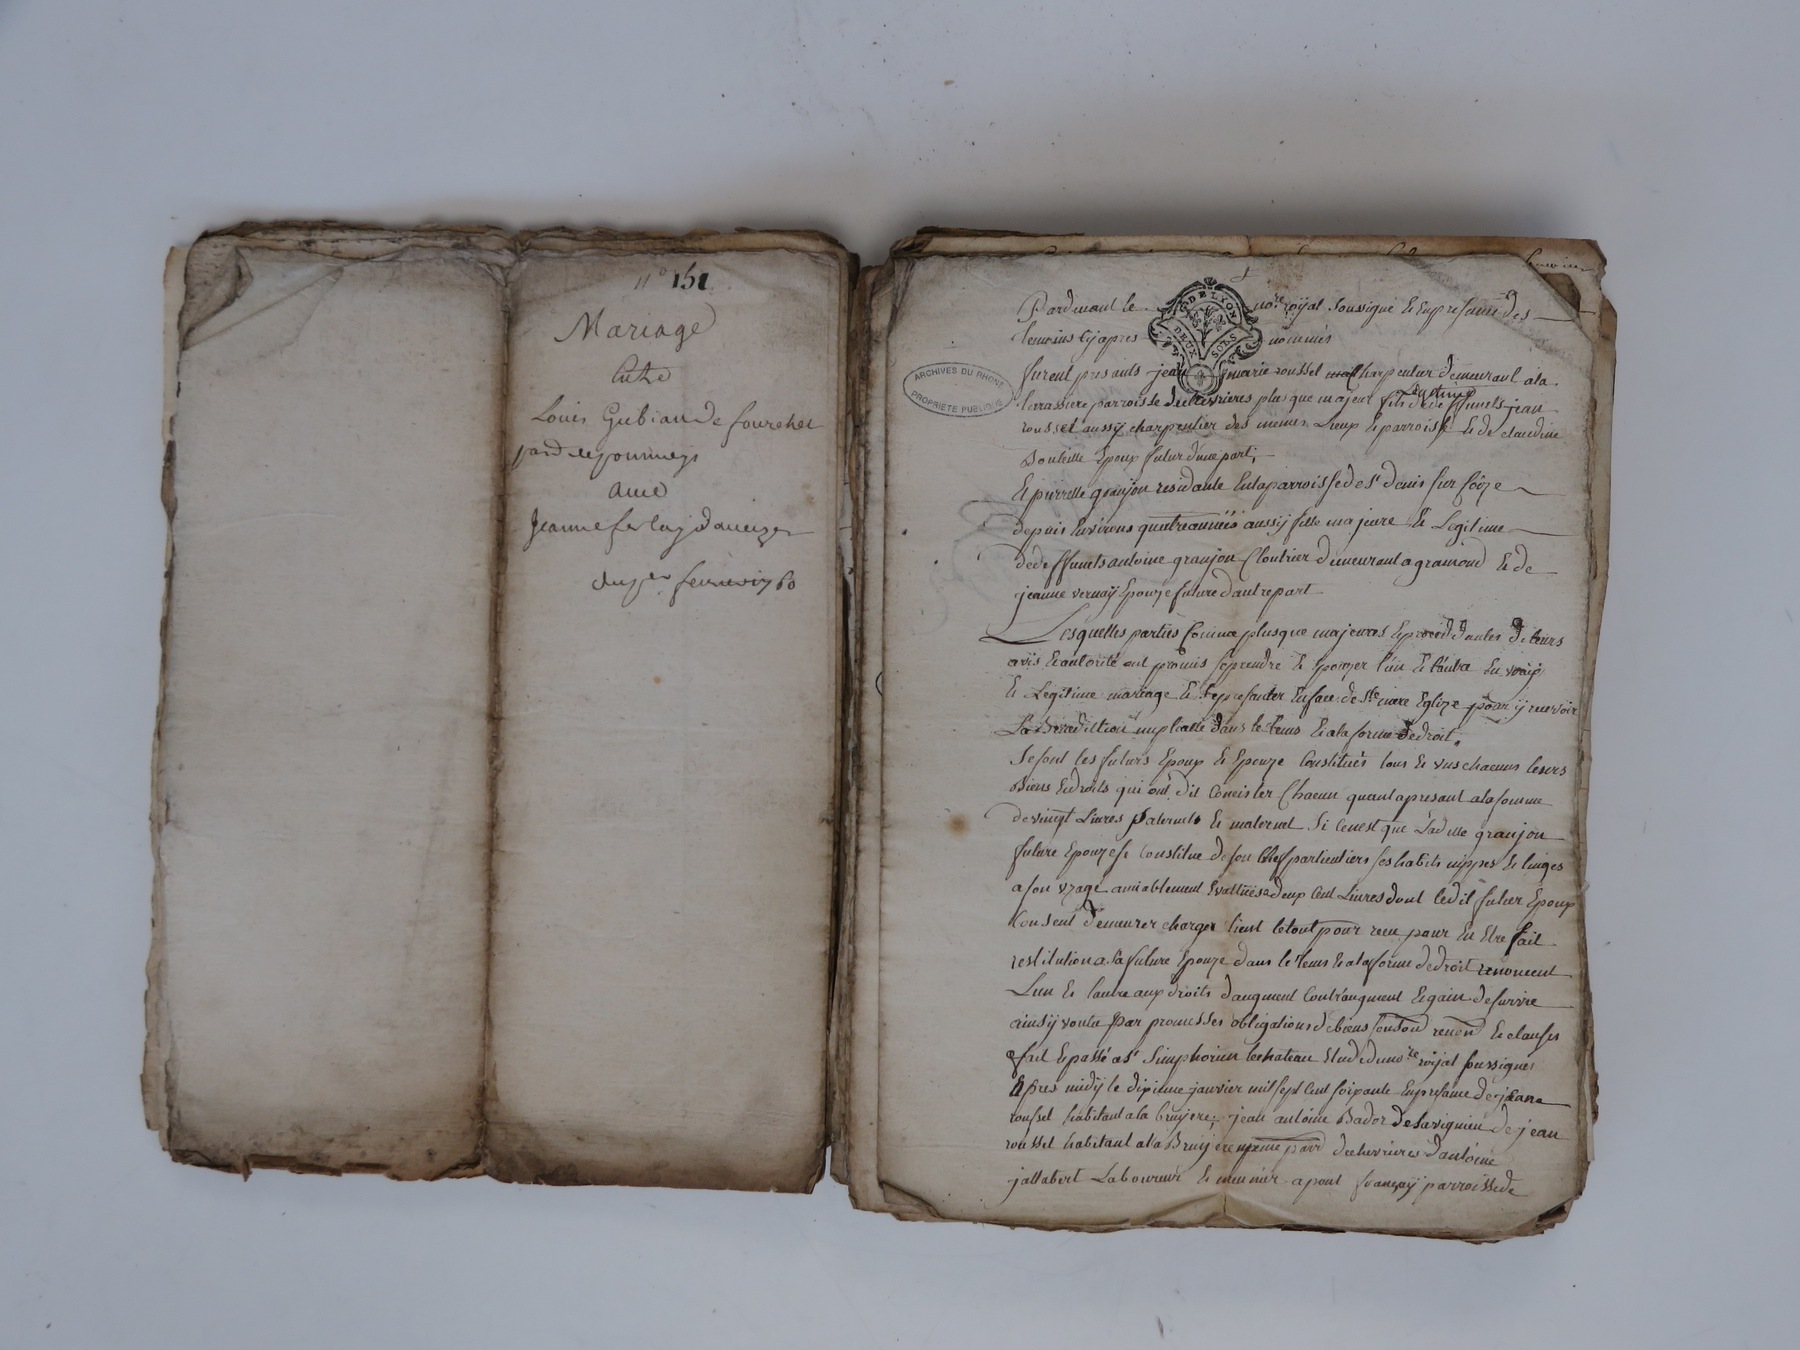 n° 151
Mariage
Entre
Louis Gubian de fourchet
parr. de pommeys
avec
Jeanne ferlay d'aveize
du 5er fevrier 1760
Pardevant le no.re roÿal soussigné Et En presance des
temoins cÿ apres nommés
furent presants jean marie rousset charpentier demeurant a la
terrassiere parroisse de chevrieres plus que majeur fils Legitime de deffunts jean
rousset aussÿ charpentier des memes Lieux Et parroisse Et de claudine
Bouteille Epoux futur d'une part,
Et pierrette granjon residante En la parroisse de st denis sur Coize
depuis Environs quatre années aussÿ fille majeure Et Legitime
de deffunts antoine granjon Cloutrier demeurant a gramond Et de
jeanne vernaÿ Epouze future d'autre part
Lesquelles parties Comme plus que majeures Et procédantes de leurs
avis Et autorité ont promis se prendre Et Epouzer l'un Et l'autre En vraÿ
Et Legitime mariage Et se presenter En face de Ste mere Eglize pour ÿ recevoir
La Benediction nuptialle dans le tems Et a la forme de droit.
Se sont les futurs Epoux Et Epouze Constitués tous Et uns chacuns leurs
Biens Et droits qui ont dit Concister Chacun quant a presant a la somme
de vingt Livres paternels Et maternel Si Ce n'est que Ladite granjon
future Epouze se Constitue de son Chef particuliers ses habits nippes Et linges
a son uzage amiablement Evallués a deux Cent Livres dont ledit futur Epoux
Consent demeurer charger tient le tout pour reçu pour En Etre fait
restitution a La future Epouze dans le tems Et a la forme de droit renoncent
L'un Et l'autre aux droits d'augment Contraugment Et gain de survie
ainsÿ voulu par promesses obligations de biens renon Et clauses
fait Et passé a st simphorien le chateau Etude du no.re roÿal soussigné
apres midÿ le dixieme janvier mil sept Cent soixante En presance de jeanne
rousset habitant a la bruÿere, jean antoine Bador de Savigneu de jean
rousset habitant a la Bruÿere meme parr de chevrieres d'antoine
jallabert Laboureur Et meunier a pont françaÿ parroisse de
G DE LYON
DEUX SOLS
ARCHIVES DU RHONE
PROPRIETE PUBLIQUE